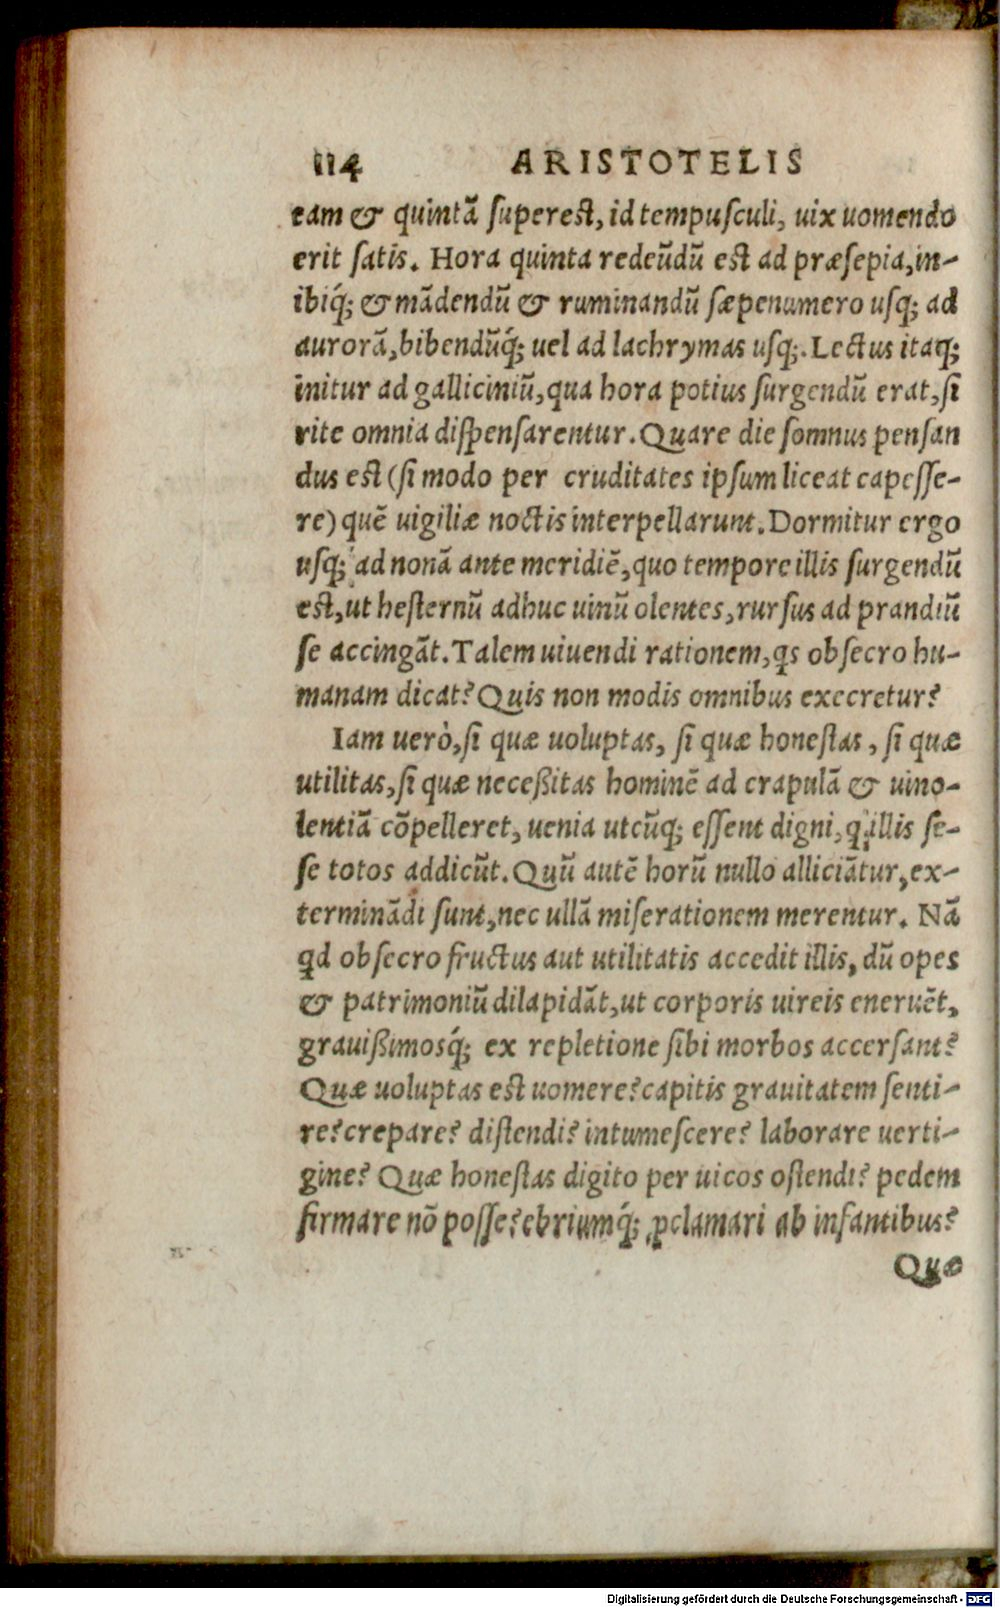 114 ARISTOTELIS
eam & quintā ſupereſt, id tempuſculi, uix uomendo
erit ſatis. Hora quinta redeūdū eſt ad præſepia, in-
ibiq́; & mādendū & ruminandū ſæpenumero uſq; ad
aurorā, bibendūq́; uel ad lachrymas uſq;. Lectus itaq;
initur ad galliciniū, qua hora potius ſurgendū erat, ſi
rite omnia diſpenſarentur. Quare die ſomnus penſan
dus eſt (ſi modo per cruditates ipſum liceat capeſſe-
re) quē uigiliæ noctis interpellarunt. Dormitur ergo
uſq; ad nonā ante meridiē, quo tempore illis ſurgendū
eſt, ut heſternū adhuc uinū olentes, rurſus ad prandiū
ſe accingāt. Talem uiuendi rationem, qs obſecro hu-
manam dicat? Quis non modis omnibus execretur?
Iam uerò, ſi quæ uoluptas, ſi quæ honeſtas, ſi quæ
utilitas, ſi quæ neceßitas hominē ad crapulā & uino-
lentiā cōpelleret, uenia utcūq; eſſent digni, q illis ſe-
ſe totos addicūt. Quū autē horū nullo alliciātur, ex-
terminādi ſunt, nec ullā miſerationem merentur. Nā
qd obſecro fructus aut utilitatis accedit illis, dū opes
& patrimoniū dilapidāt, ut corporis uireis eneruēt,
grauißimosq́; ex repletione ſibi morbos accerſant?
Quæ uoluptas eſt uomere? capitis grauitatem ſenti-
re? crepare? diſtendi? intumeſcere? laborare uerti-
gine? Quæ honeſtas digito per uicos oſtendi? pedem
firmare nō poſſe? ebriumq́; ꝓclamari ab infantibus?
Quæ
Digitalisierung gefördert durch die Deutsche Forschungsgemeinschaft - DFG